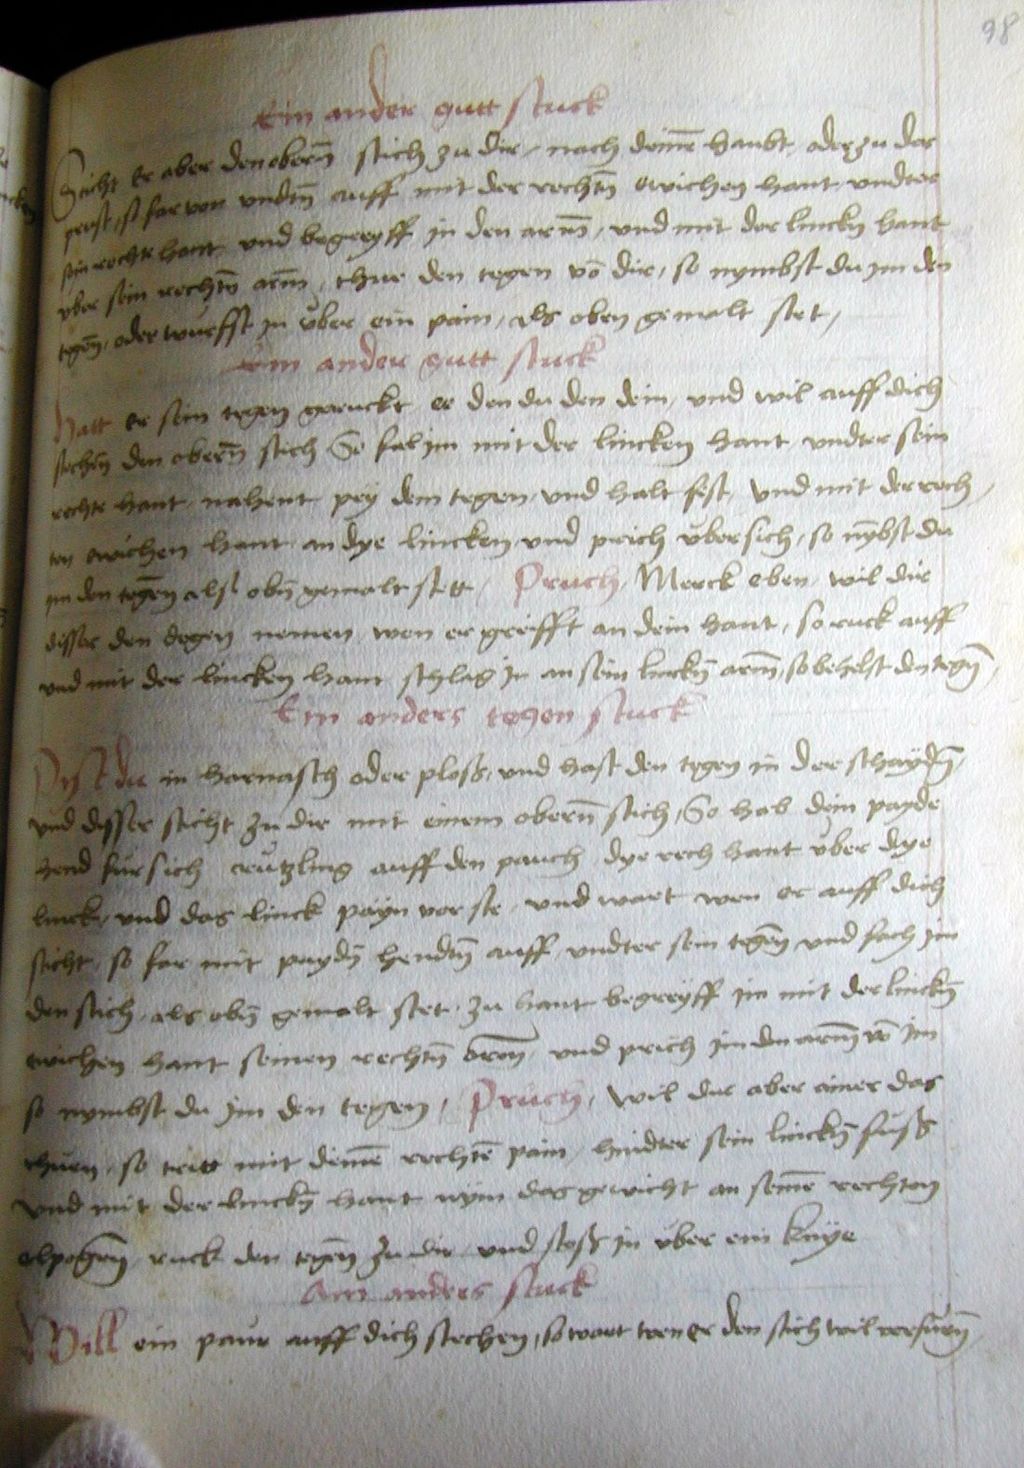 98
Ein ander gutt stuck
Sticht er aber den obern̄ stich zu dir, nach deinē haubt, oder zu der
prust, so far von vndtn̄ auff mit der rechtn̄ ebichen hant vndter
sein rechte hant vnd begreyff in den arm̄, vnd mit der linckn̄ hant
vber sein rechtn̄ arm̄, thue den tegen vō dir, so nymbst du im den
tegen̄, oder wurffst in vber ein pain, als oben gemalt stet,
Ein ander gutt stuck
Hatt er sein tegen geruckt er den du den dein, vnd wil auff dich
stechen̄ den obern̄ stich So fal im mit der lincken hant, vndter sein
rechte hant, nahent pey dem tegen, vnd halt fest, vnd mit der rech,
ten ebichen hant, an dye lincken vnd prich vbersich, so nȳbst du
im den tegen̄ als obn̄ gemalt stett, Pruch, Merck eben, wil dir
disser den degen nemen, wen er greifft an dein hant, so ruck auff
vnd mit der lincken hant schlag in an sein linckn̄ arm̄, so behelst den tegn̄,
Ein anders tegen stuck
Pist du in harnasch oder ploß, vnd hast den tegen in der schaydn̄,
vnd disser sticht zu dir mit einem obern̄ stich, So hab dein payde
hend fur sich creutzling auff den pauch, dye rech hant vber dye
linck, vnd das linck payn vor ste, vnd wart wen er auff dich
sticht, so far mit paydn̄ hendtn̄ auff, vndter sein tegen̄ vnd fach im
den stich, als obn̄ gemalt stet, zu hant begreyff im mit der linckn̄
ebichen hant seinen rechtn̄ arm̄, vnd prich im den arm̄ vō im
so nymbst du im den tegen, Pruch, Wil dir aber ainer das
thuen, so tritt mit deinē rechtē pain, hindter sein linckn̄ fuß
vnd mit der linckn̄ hant nym das gewicht an seinē rechten
elpogen̄, ruck den tegen̄ zu dir, vnd stoß in vber ein knye
Ain anders stuck
Will ein paur auff dich stechen, so wart wen er den stich wil verfurn̄,